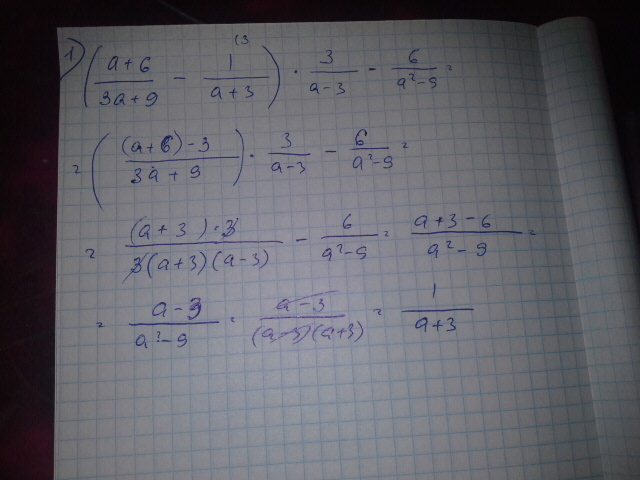 1) ((a+6)/(3a+9) - 1/(a+3) (3) · 3/(a-3) - 6/(a²-9) =
= (((a+6)-3)/(3a+9)) · 3/(a-3) - 6/(a²-9) =
= ((a+3)·3)/(3(a+3)(a-3)) - 6/(a²-9) = (a+3-6)/(a²-9) =
= (a-3)/(a²-9) = (a-3)/((a-3)(a+3)) = 1/(a+3)